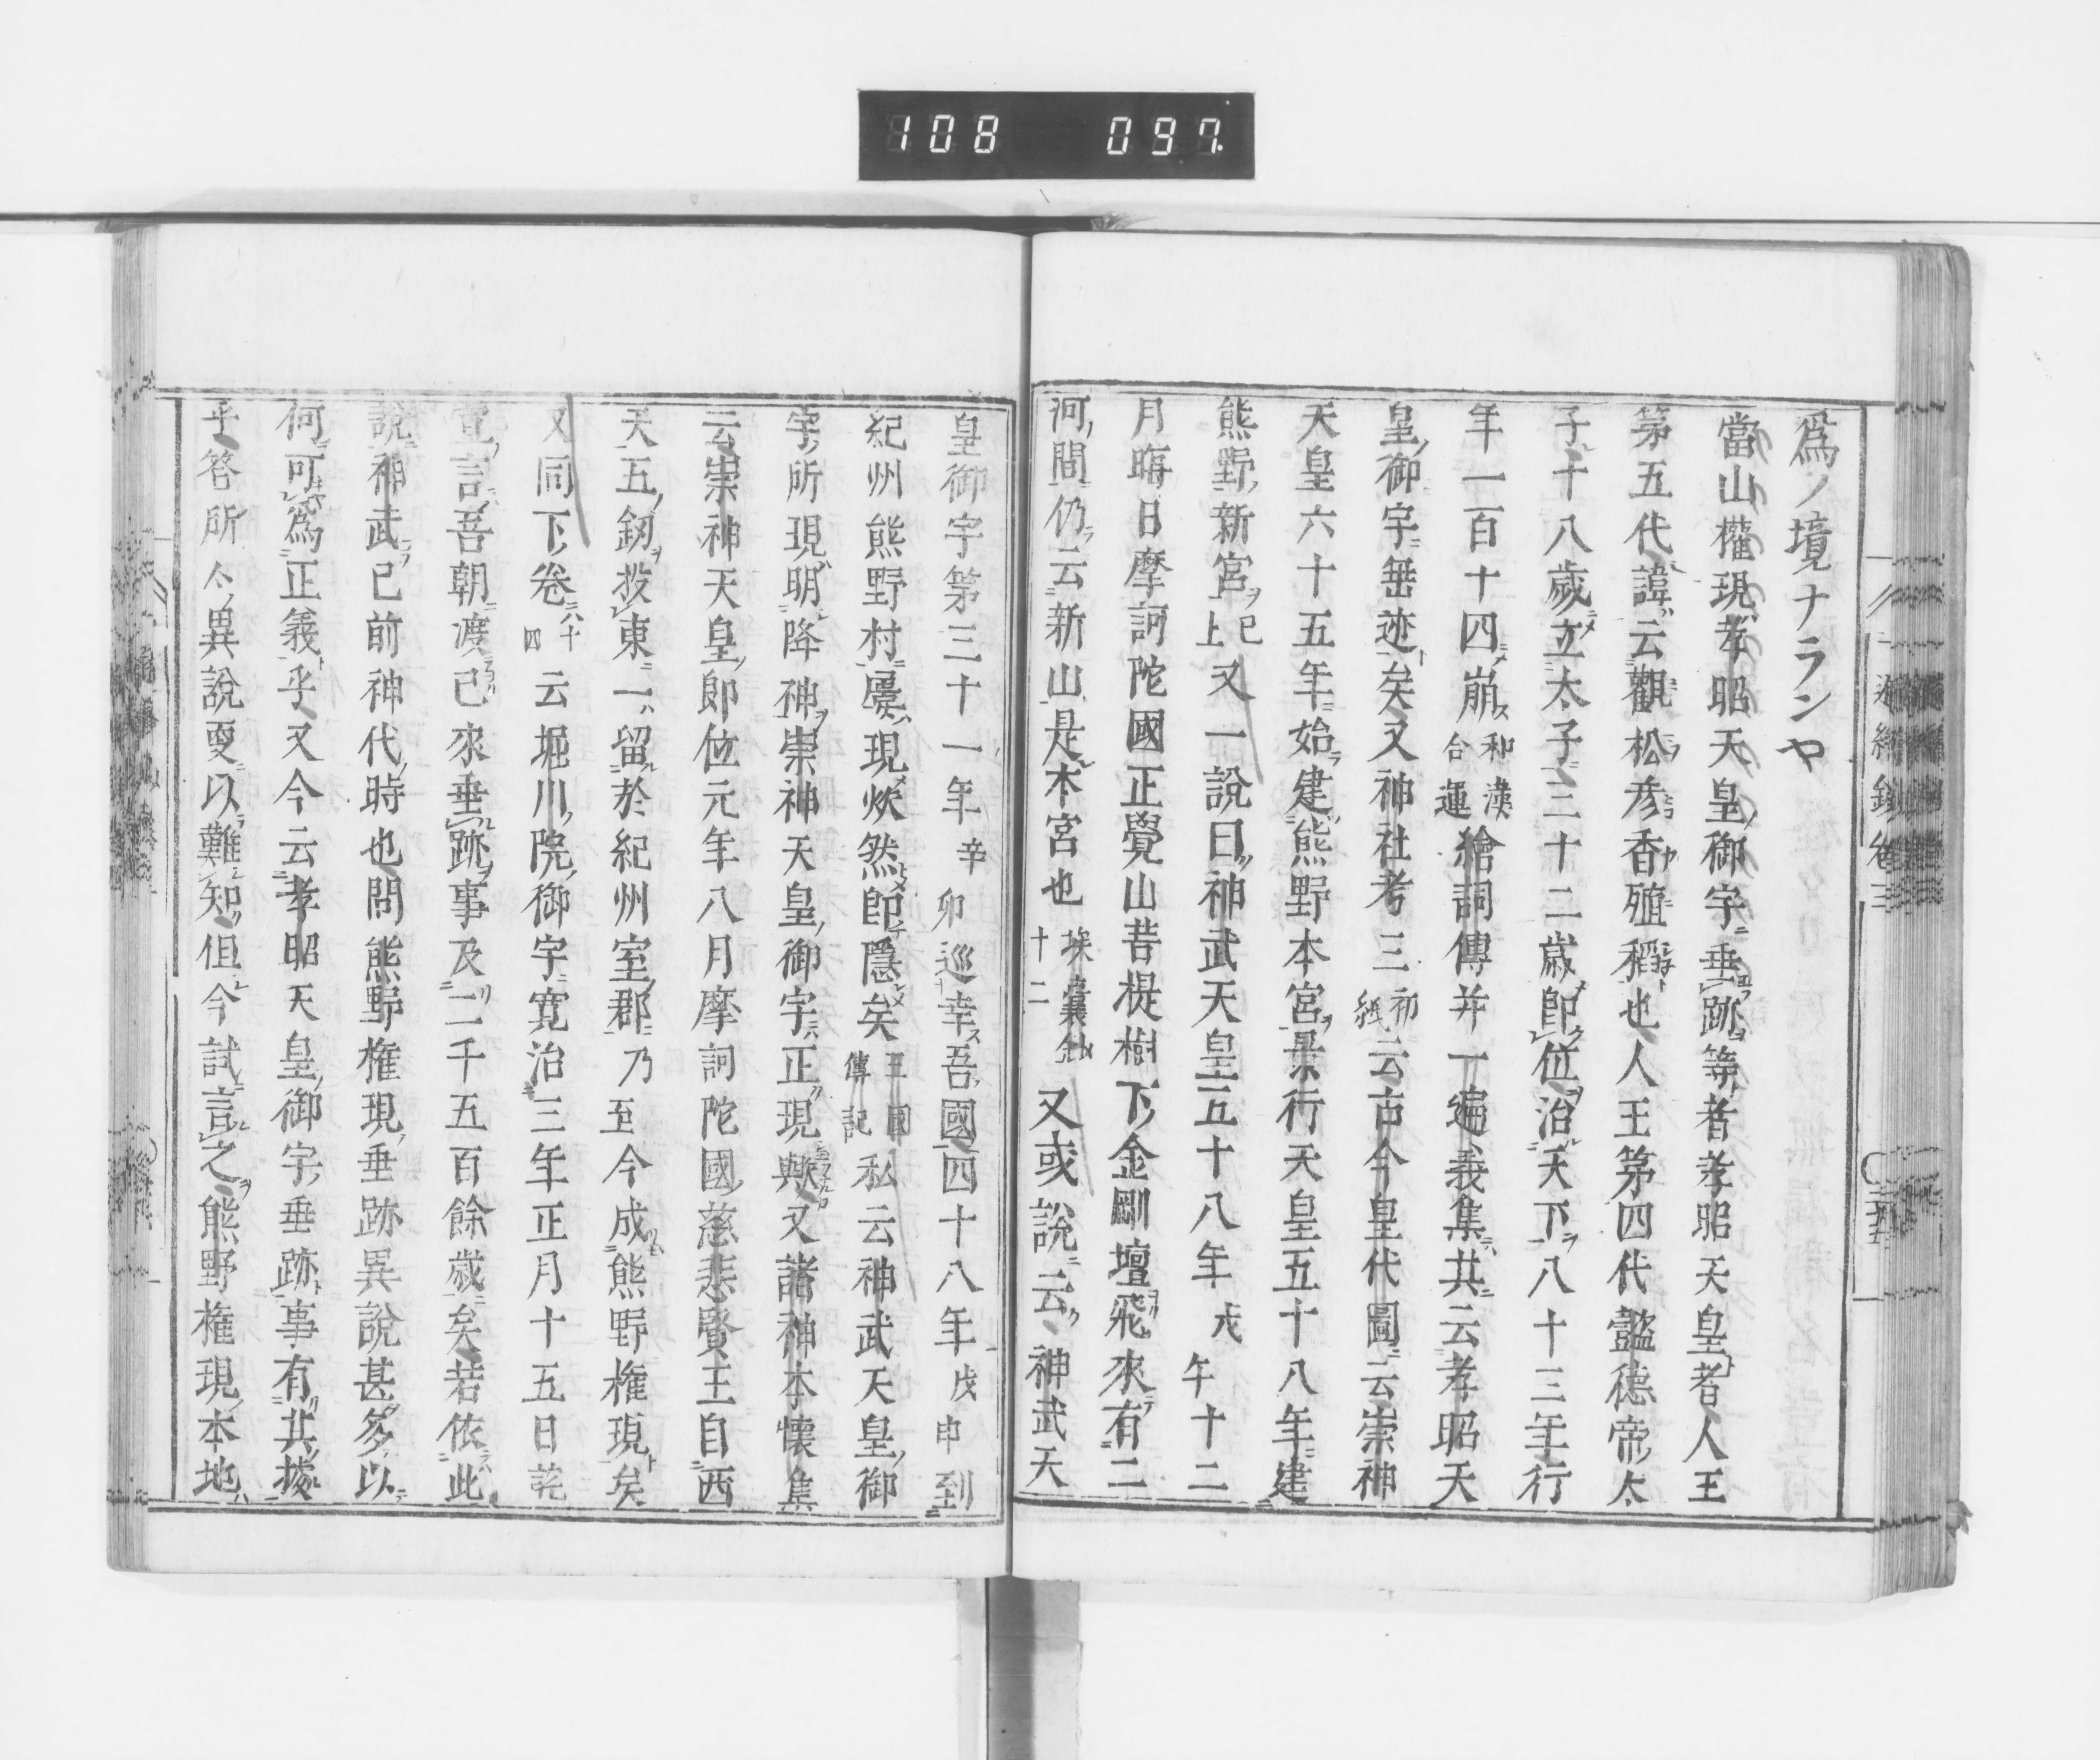 108 097
爲ノ境ナランヤ
當山權現孝昭天皇御宇垂跡等者孝昭天皇者人王
第五代諱云觀松彦香殖稻也人王第四代懿德帝太
子十八歲立太子三十二歲卽位治天下八十三年行
年一百十四崩和漢合運繪詞傳并一遍義集共云孝昭天
皇御宇垂迹矣又神社考三初紙云古今皇代圖云崇神
天皇六十五年始建熊野本宮景行天皇五十八年建
熊野新宮已上又一說曰神武天皇五十八年戊午十二
月晦日摩訶陀國正覺山菩提樹下金剛壇飛來有二
河間仍云新山是本宮也埃囊鈔十二又或說云神武天
皇御宇第三十一年辛卯巡幸吾國四十八年戊申到
紀州熊野村㞍現焱然卽隱矣三國傳記私云神武天皇御
宇所現明降神崇神天皇御宇正現歟又諸神本懷集
云崇神天皇卽位元年八月摩訶陀國慈悲賢王自西
天五釼投東一留於紀州室郡乃至今成熊野權現矣
又同下卷六十四云堀川院御宇寬治三年正月十五日詫
宣言吾朝渡已來垂跡事及二千五百餘歲矣若依此
說神武已前神代時也問熊野權現垂跡異說甚多以
何可爲正義乎又今云孝昭天皇御宇垂跡事有共據
乎答所以異說更以難知但今試言之熊野權現本地